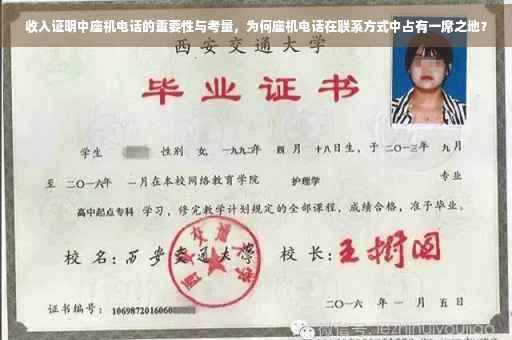 收入证明中座机电话的重要性与考量，为何座机电话在联系方式中占有一席之地？
西安交通大学
毕业证书
学生 性别 女，一九九二年 四月 十八日生，于二〇一三年 九月
至 二〇一六年 一月在本校网络教育学院 护理学 专业
高中起点专科 学习，修完教学计划规定的全部课程，成绩合格，准予毕业。
校名：西安交通大学 校长：王树国
西安交通大学
证书编号：1069872016060
二〇一六年 一月 五日
微信号: jezhihuiyoujiao